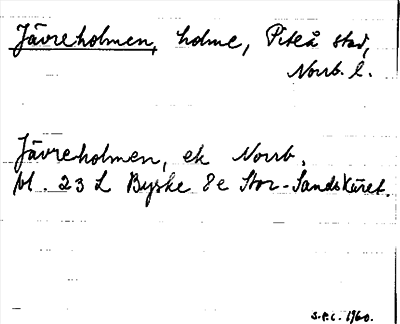 Jävreholmen, holme, Piteå stad,
Norrb. l.
Jävreholmen, ek Norrb.
bl. 23 L Byske 8e Stor-Sandskäret.
S.P.C. 1960.